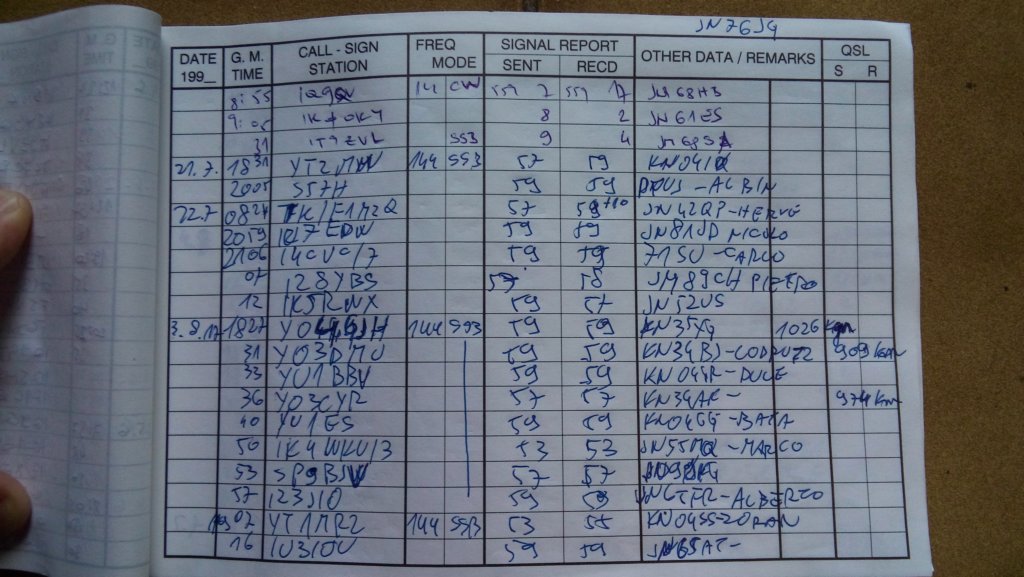 JN76JG
DATE 199_ G. M. TIME CALL - SIGN STATION FREQ MODE SIGNAL REPORT SENT RECD OTHER DATA / REMARKS QSL S R
8:55 14 CW 559 559 JM68
9:05 IK7OKY 8 2 JN61ES
31 IT9EVL SSB 9 4
21.7. 1831 144 SSB 57 59
2005 S57H 59 59 - ALBIN
22.7 0824 TK/F1MZQ 57 59+10 JN42QP-HERVE
2059 IK7EDW 59 59 JN81JD NICOLO
2106 I4CVC/7 59 59 71SU-CARLO
07 IZ8YBS 57 58 JM89CH PIETRO
12 IK5RWX 59 57 JN52US
3.8.17 1827 144 SSB 59 59 KN35YG 1026 km
31 YO3DMU 59 59 KN34BJ-CODRUTZ 909 km
33 YU1BBV 59 59 -DULE
36 YO3CYR 57 57 KN34AK- 974 km
40 YU1ES 59 59 KN04GG-BATA
50 IK4WKU/3 53 53 JN55MQ-MARCO
53 SP9BSV 57 57
57 IZ3JIO 59 59 -ALBERTO
1907 YT1MRZ 144 SSB 53 55 KN04SS-ZORAN
16 IU3IOU 59 59 JN65AT-